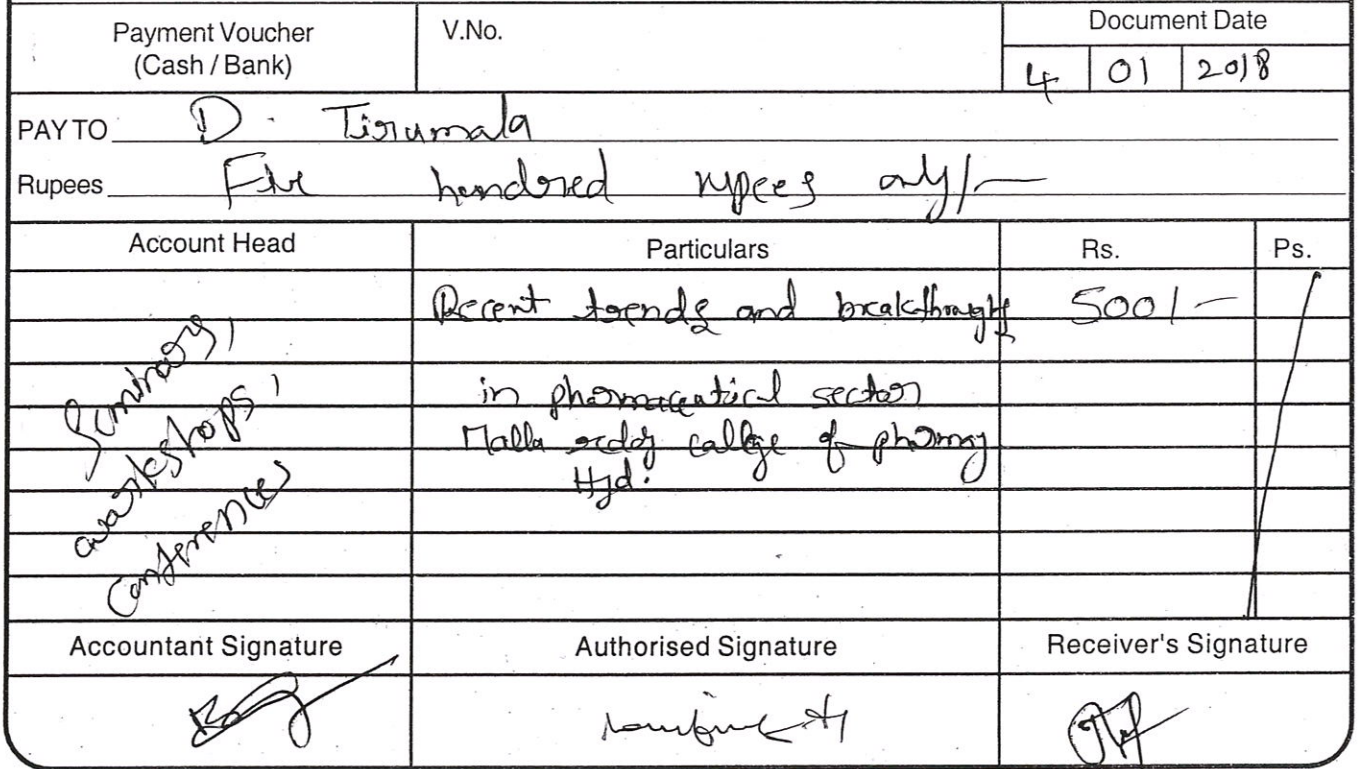 Payment Voucher
(Cash / Bank)
V.No.
Document Date
4 01 2018
PAY TO D. Tirumala
Rupees Five hundred rupees only/-
Account Head
Particulars
Rs.
Ps.
Seminars,
workshops,
Conferences
Recent trends and breakthroughs 500/-
in pharmaceutical sector
Malla reddy college of pharmacy
Hyd.
Accountant Signature
Authorised Signature
Receiver's Signature